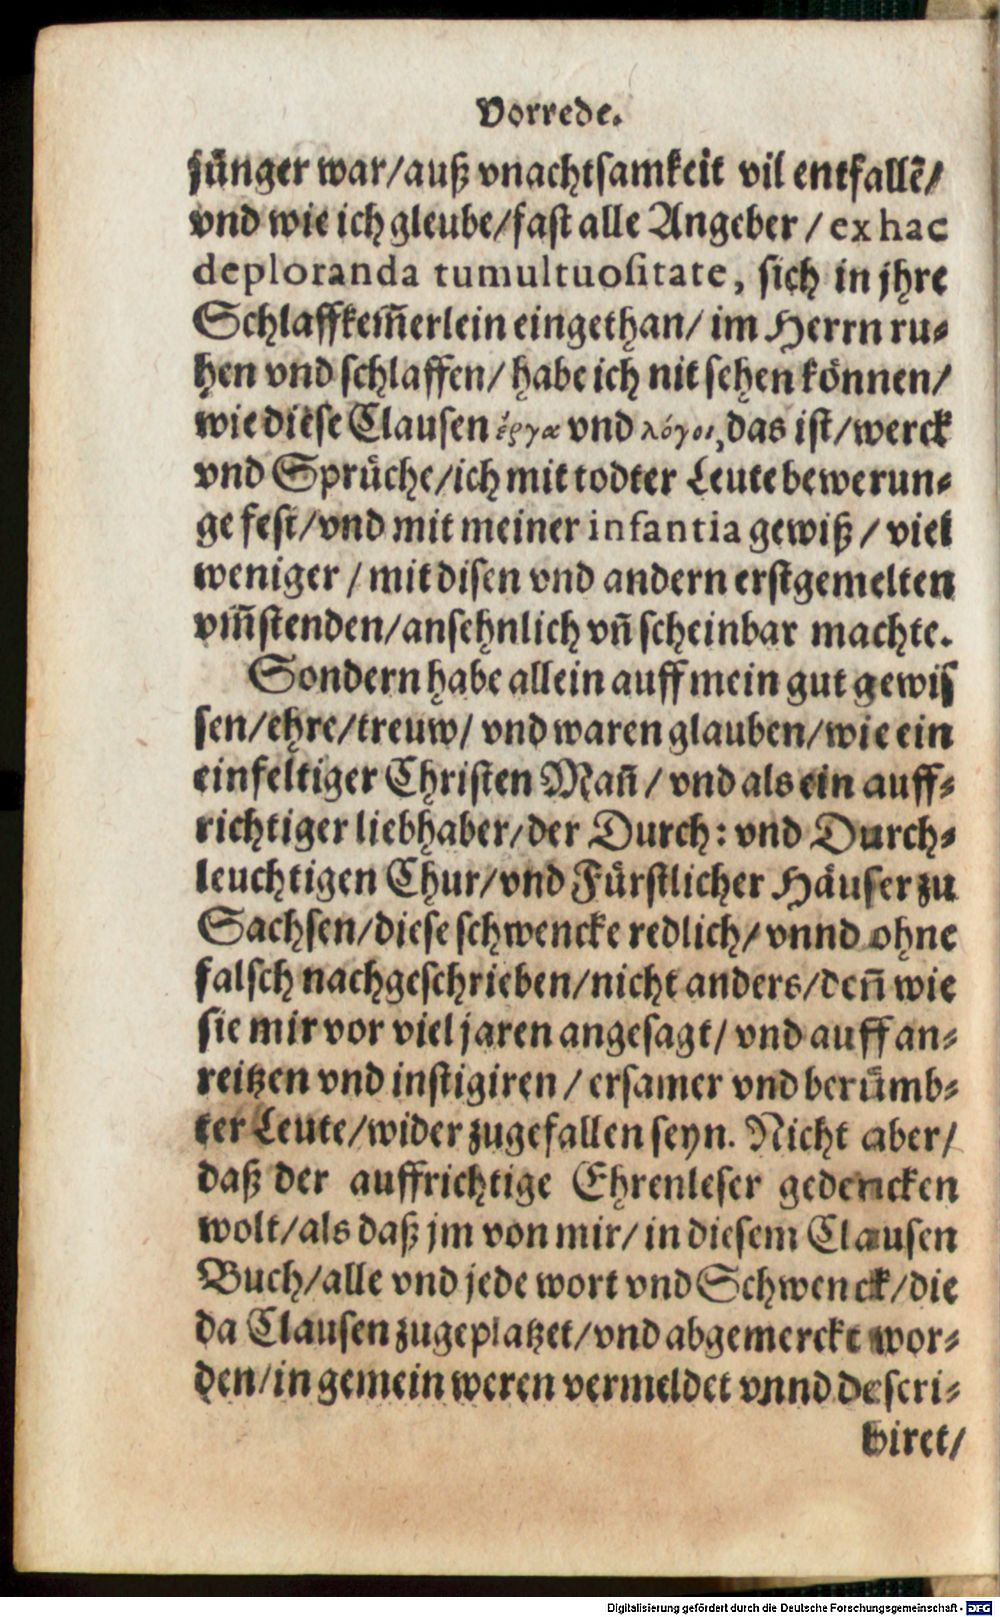 Vorrede.
jünger war/auß vnachtsamkeit vil entfallẽ/
vnd wie ich gleube/fast alle Angeber / ex hac
deploranda tumultuositate, sich in jhre
Schlaffkem̃erlein eingethan/ im Herrn ru-
hen vnd schlaffen/ habe ich nit sehen können/
wie diese Clausen ἔργα vnd λόγοι, das ist/werck
vnd Sprüche/ich mit todter Leute bewerun-
ge fest/vnd mit meiner infantia gewiß / viel
weniger / mit disen vnd andern erstgemelten
vm̃stenden/ansehnlich vñ scheinbar machte.
Sondern habe allein auff mein gut gewis
sen/ehre/treuw/ vnd waren glauben/wie ein
einfeltiger Christen Mañ / vnd als ein auff-
richtiger liebhaber/der Durch: vnd Durch-
leuchtigen Chur/vnd Fürstlicher Häuser zu
Sachsen/diese schwencke redlich/ vnnd ohne
falsch nachgeschrieben/nicht anders/deñ wie
sie mir vor viel jaren angesagt/ vnd auff an-
reitzen vnd instigiren / ersamer vnd berümb-
ter Leute/wider zugefallen seyn. Nicht aber/
daß der auffrichtige Ehrenleser gedencken
wolt/als daß jm von mir/ in diesem Clausen
Buch/alle vnd jede wort vnd Schwenck/die
da Clausen zugeplatzet/vnd abgemerckt wor-
den/in gemein weren vermeldet vnnd descri-
biret/
Digitalisierung gefördert durch die Deutsche Forschungsgemeinschaft - DFG